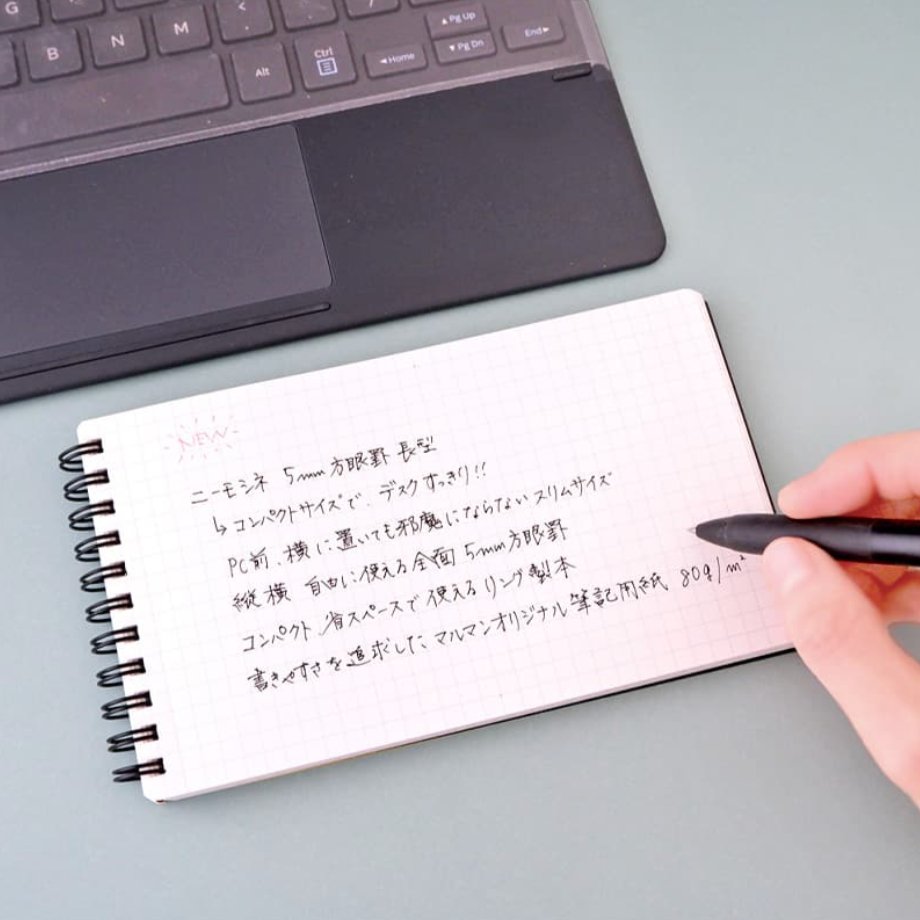 G
<
/
B
N
M
Alt
Ctrl
◄Home
▲Pg Up
▼Pg Dn
End►
NEW
ニーモシネ 5mm方眼罫 長型
↳コンパクトサイズで、デスクすっきり!!
PC前、横に置いても邪魔にならないスリムサイズ
縦横 自由に使える全面5mm方眼罫
コンパクト、省スペースで使えるリング製本
書きやすさを追求したマルマンオリジナル筆記用紙 80g/m²